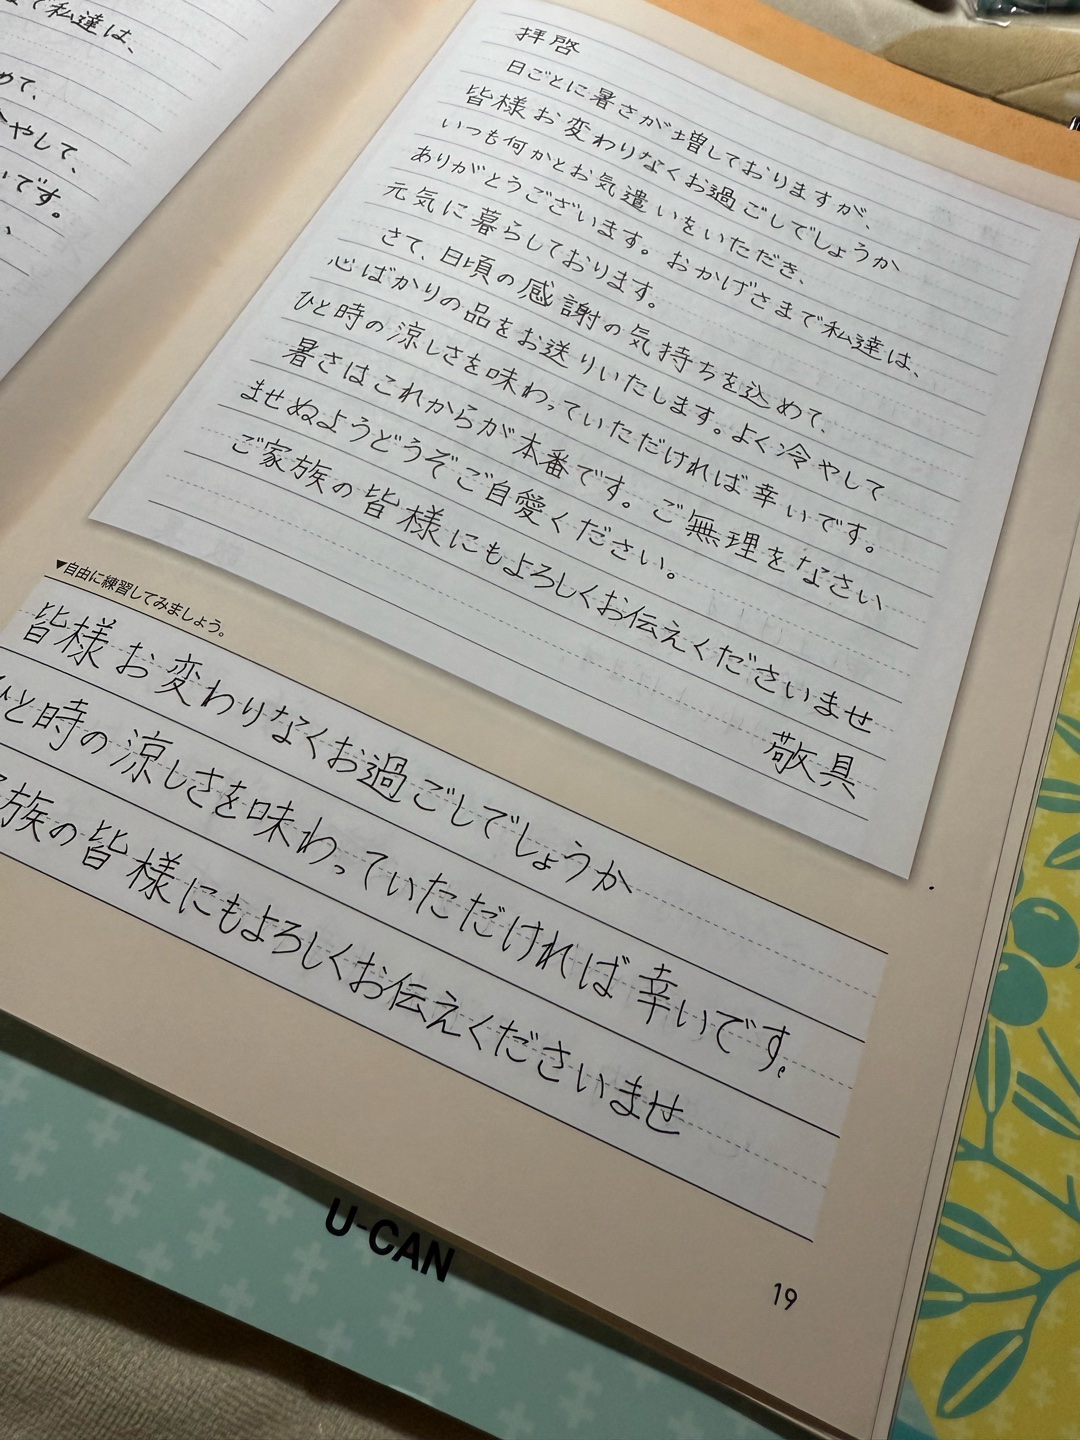 私達は、
めて、
やして、
いです。
、
拝啓
日ごとに暑さが増しておりますが、
皆様お変わりなくお過ごしでしょうか
いつも何かとお気遣いをいただき、
ありがとうございます。おかげさまで私達は、
元気に暮らしております。
さて、日頃の感謝の気持ちを込めて、
心ばかりの品をお送りいたします。よく冷やして
ひと時の涼しさを味わっていただければ幸いです。
暑さはこれからが本番です。ご無理をなさい
ませぬようどうぞご自愛ください。
ご家族の皆様にもよろしくお伝えくださいませ
敬具
▼自由に練習してみましょう。
皆様お変わりなくお過ごしでしょうか
ひと時の涼しさを味わっていただければ幸いです。
族の皆様にもよろしくお伝えくださいませ
U-CAN
19